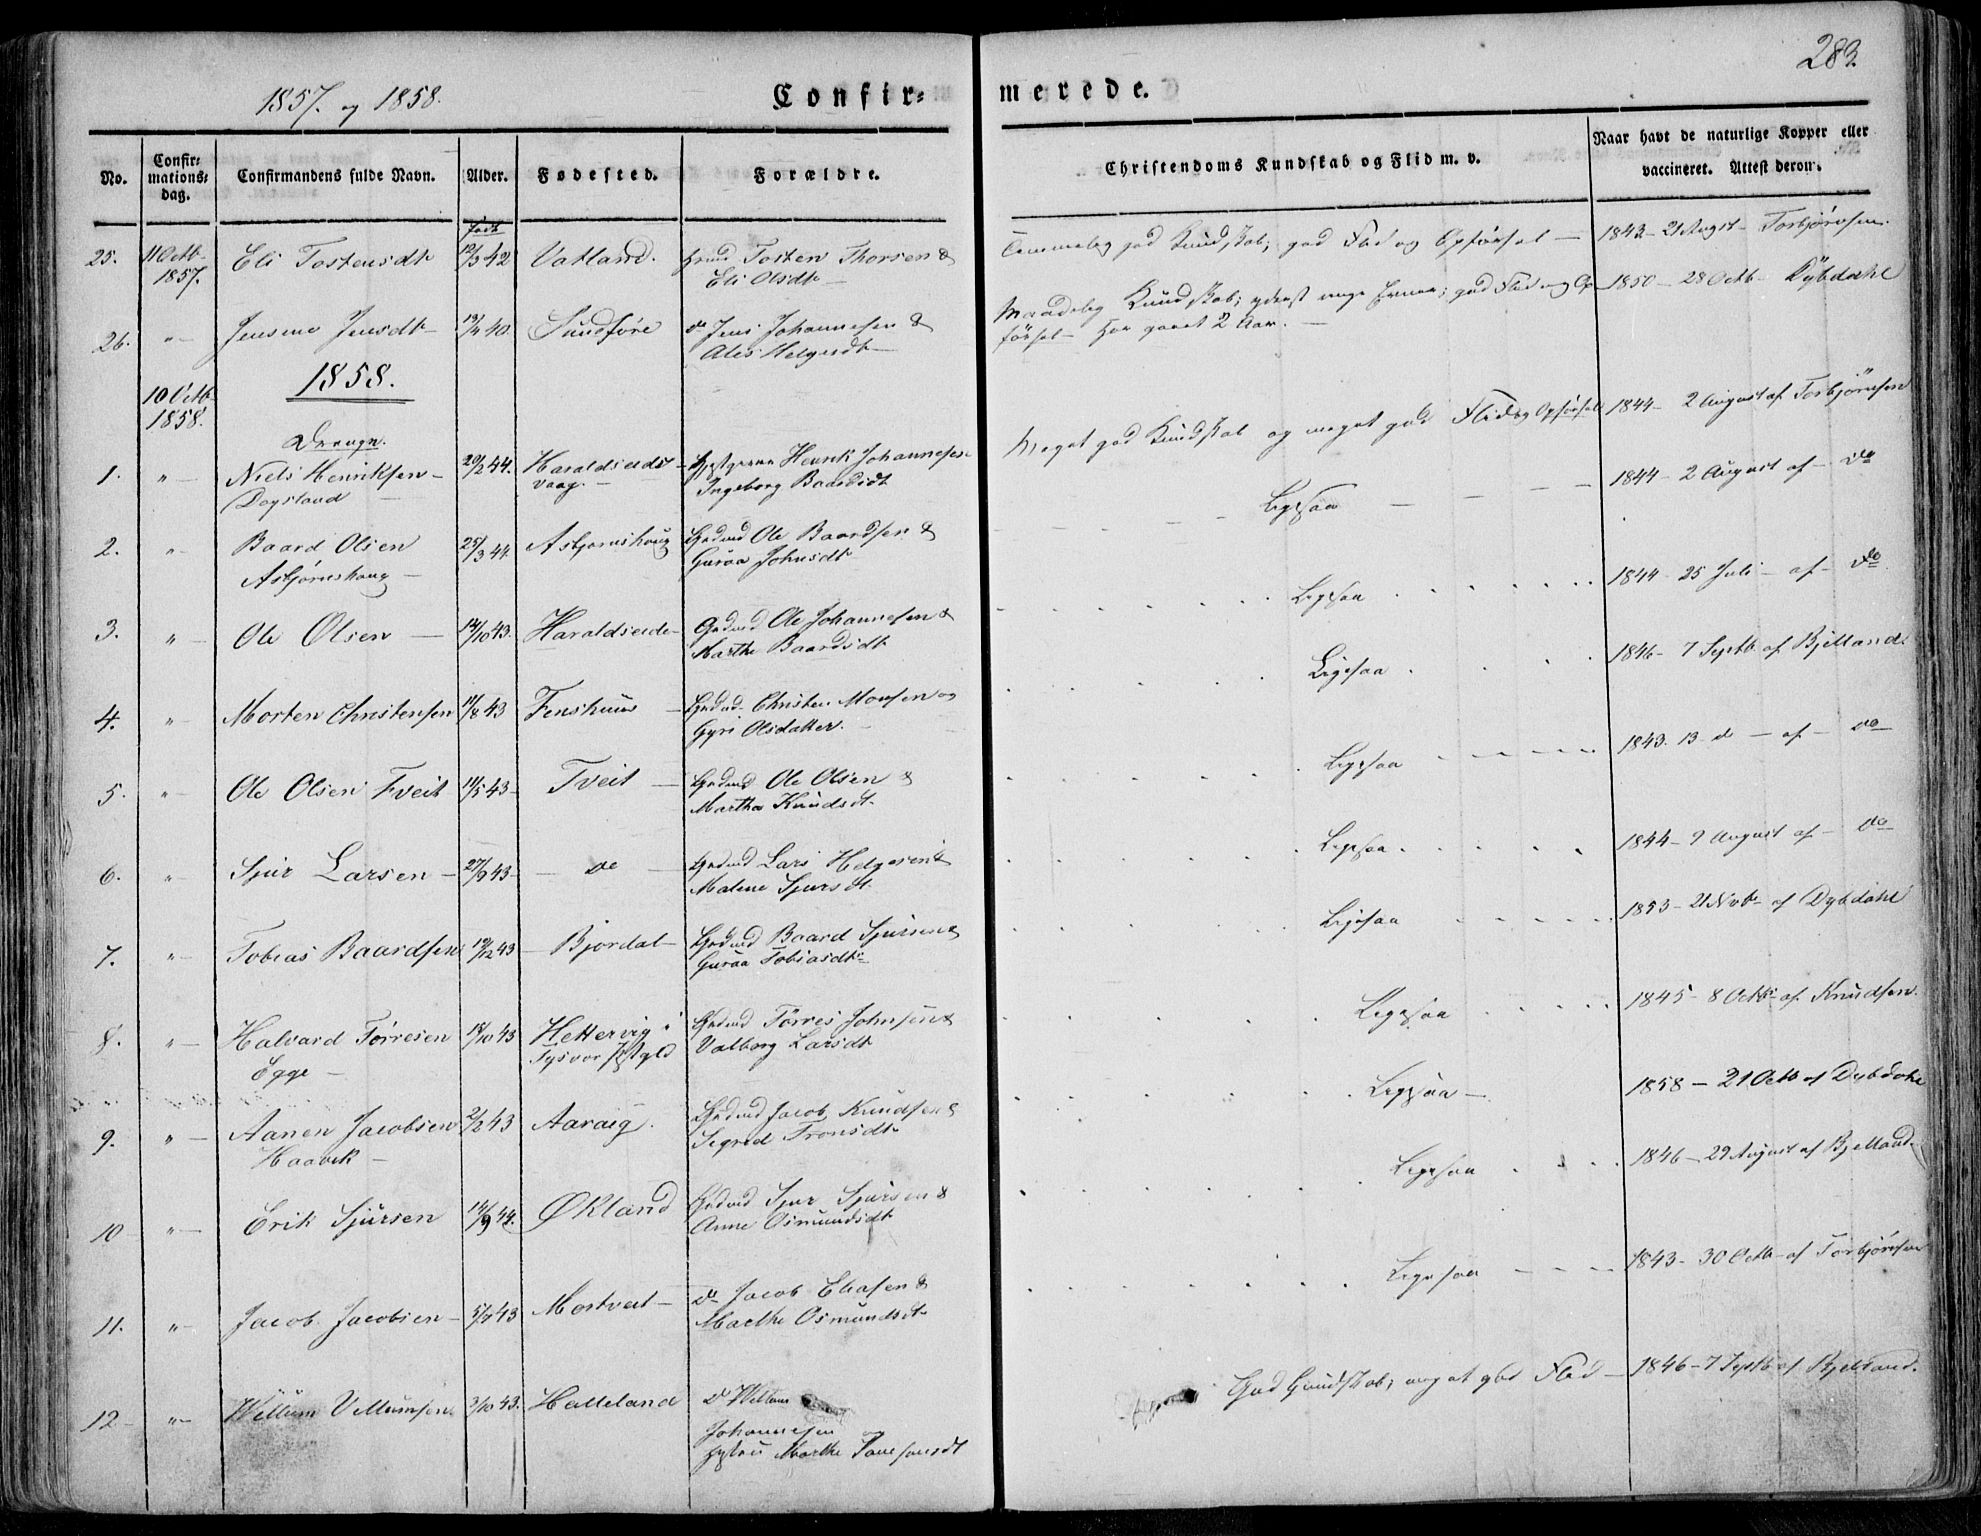 283.
1857. og 1858.
Confir=
merede.
No.
Confir=
mations=
dag.
Confirmandens fulde Navn.
Alder.
Fødested.
Forældre.
Christendoms Kundskab og Flid m. v.
Naar havt de naturlige Kopper eller
vaccineret. Attest derom.
født
25. 11 Octb. Eli Tostensdt. 12/3 42 Vatland. Tosten Thorsen &
1857. Eli Olsdt.
Temmelig god Kundskab; god Flid og Opførsel — 1843 - 21 Augst - Torbjørnsen.
26. " Jensine Jensdt. 40 Sundføre do Jens Johannesen &
Ales Helgesdt.
Maadelig Kundskab; god Flid og Op- 1850 - 28 Octb. Dybdahl
førsel - Har gaaet 2 Aar.
1858.
10 Octb.
1858.
Drenge.
1. " Niels Henriksen 20/2 44. Haraldseids- Henrik Johannesen
Dagsland vaag. Ingeborg Baardsdt.
Meget god Kundskab og meget god Flid og Opførsel 1844 - 2 August af Torbjørnsen
2. " Baard Olsen 25/3 44. Asbjørnshaug Grdmd Ole Baardsen &
Asbjørnshaug Guroa Johnsdt.
Ligesaa 1844 - 2 August af - do
3. " Ole Olsen 14/10 43. Haraldseide Grdmd Ole Johannesen &
Marthe Baardsdt.
Ligesaa 1844 - 25 Juli - af - do
4. " Morten Christensen 11/8 43 Fenshuus Grdmd Christen Monsen og
Gyri Olsdatter.
Ligesaa 1846 - 7 Septb. af Bjelland.
5. " Ole Olsen Tveit 11/5 43 Tveit Grdmd Ole Olsen &
Martha Knudsdt.
Ligesaa 1843. 13 do - af - do
6. " Sjur Larsen 27/9 43 do Grdmd Lars Helgesen &
Malene Sjursdt.
Ligesaa 1844 - 9 August af - do
7. " Tobias Baardsen 19/12 43 Bjordal Grdmd Baard Sjursen &
Guroa Tobiasdtr
Ligesaa 1853 - 21 Novbr. af Dybdahl
8. " Halvard Tørresen 18/10 43 Hettervig i Grdmd Tørres Johnsen &
Egge Tysvær Pstgld Valborg Larsdt.
Ligesaa 1845 - 8 Octb. af Knudsen.
9. " Aanen Jacobsen 2/2 43 Aarvig. Grdmd Jacob Knudsen &
Haavik Segred Tronsdt.
Ligesaa 1858 - 21 Octb. af Dybdahl
10 " Erik Sjursen 14/9 44. Økland Grdmd Sjur Sjursen &
Anne Osmundsdt.
Ligesaa 1846 - 29 August af Bjelland
11. " Jacob Jacobsen 43 Mortveit do Jacob Eliasen &
Marthe Osmundsdt.
Ligesaa 1843 - 30 Octb. af Torbjørnsen
12 " Willum Villumsen 3/10 43. Halleland do Willum
Johannesen og
Marthe
God Kundskab; meget god Flid - 1846 - 7 Septb. af Bjelland.